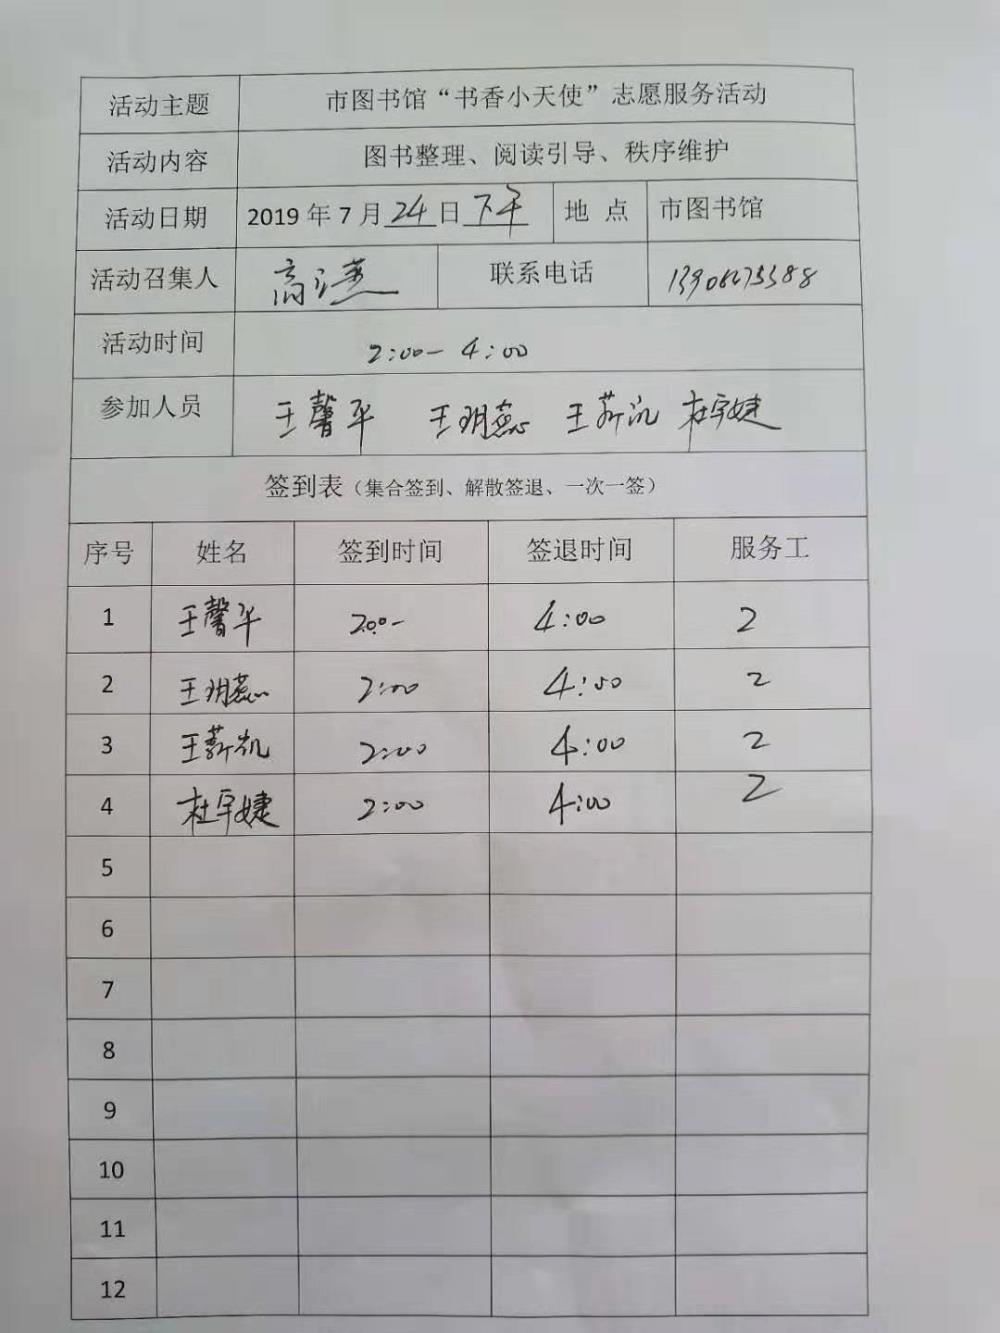 活动主题 市图书馆“书香小天使”志愿服务活动
活动内容 图书整理、阅读引导、秩序维护
活动日期 2019年7月24日下午 地 点 市图书馆
活动召集人 高 燕 联系电话
活动时间 2:00-4:00
参加人员 王馨平 王玥蕊 王薪凯 杜宇婕
签到表（集合签到、解散签退、一次一签）
序号 姓名 签到时间 签退时间 服务工
1 王馨平 2:00- 4:00 2
2 王玥蕊 2:00 4:00 2
3 王薪凯 2:00 4:00 2
4 杜宇婕 2:00 4:00 2
5
6
7
8
9
10
11
12